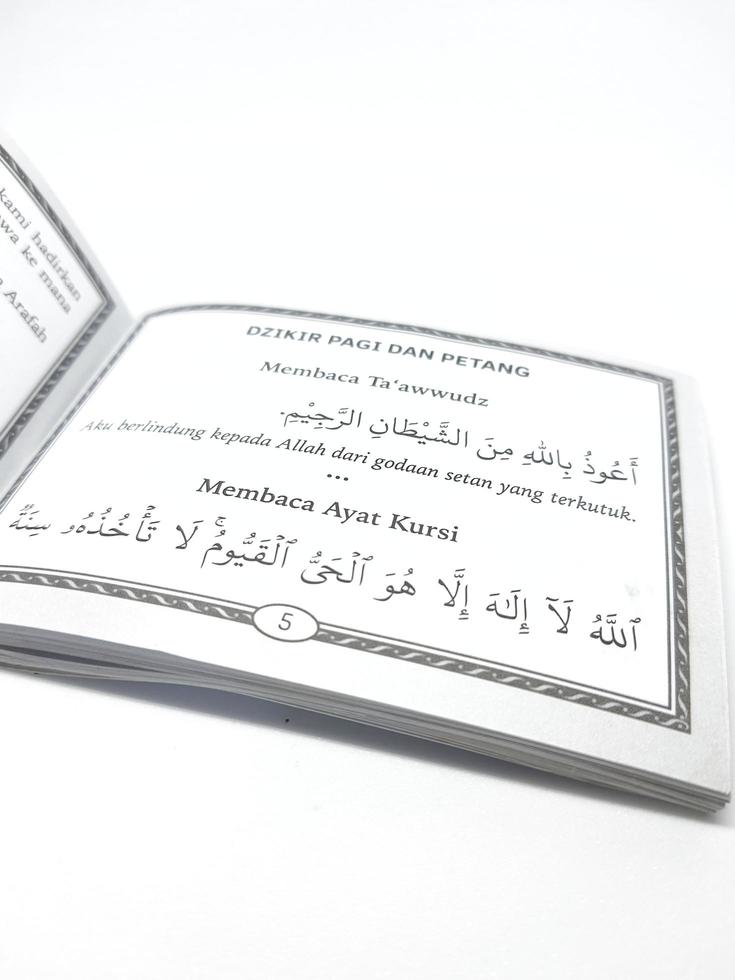 kami hadirkan
ke mana
Arafah
DZIKIR PAGI DAN PETANG
Membaca Ta‘awwudz
أَعُوذُ بِاللّٰهِ مِنَ الشَّيْطَانِ الرَّجِيْمِ.
Aku berlindung kepada Allah dari godaan setan yang terkutuk.
•••
Membaca Ayat Kursi
ٱللَّهُ لَآ إِلَٰهَ إِلَّا هُوَ ٱلْحَىُّ ٱلْقَيُّومُ ۚ لَا تَأْخُذُهُۥ سِنَةٌ
5